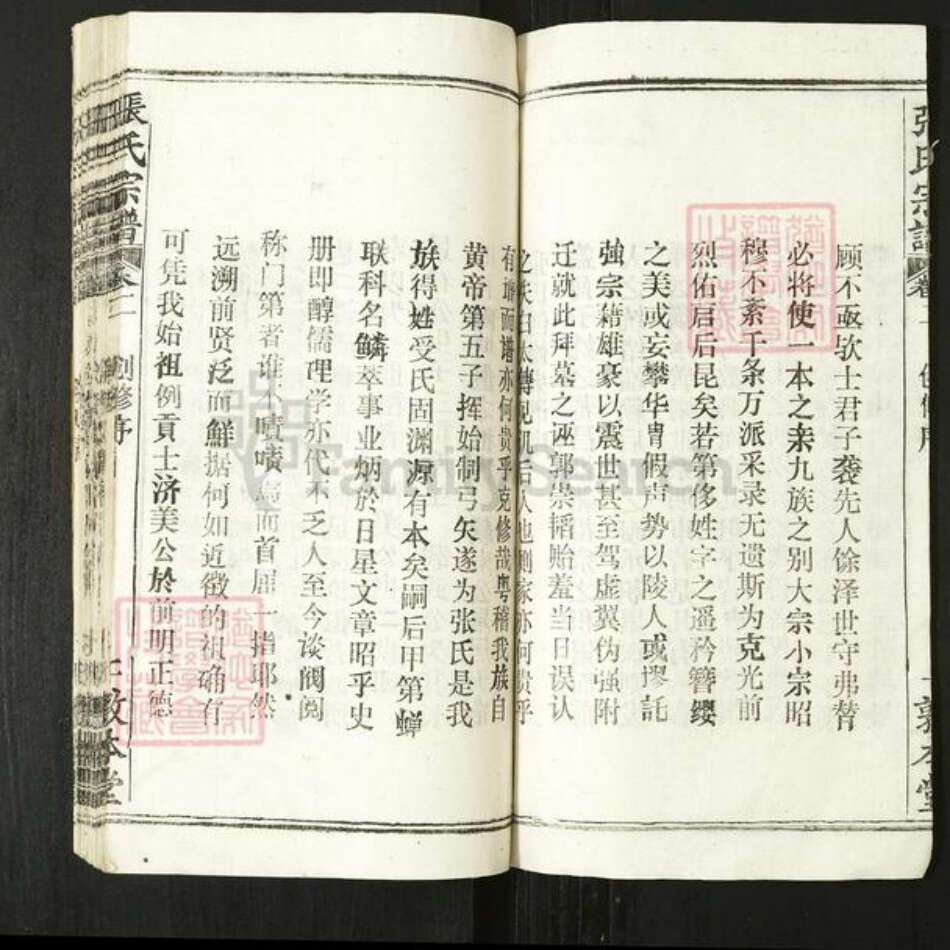 張氏宗譜
顾不亟欤士君子袭先人馀泽世守弗替
必将使一本之亲九族之别大宗小宗昭
穆不紊千条万派采录无遗斯为克光前
烈佑启后昆矣若第侈姓字之遥矜簪缨
之美或妄攀华胄假声势以陵人或謬託
強宗藉雄豪以震世甚至驾虚翼伪强附
迁就此拜墓之诬郭崇韬贻羞当日误认
之狄白太傅见讥后人也则家亦何贵乎
有谱而谱亦何贵乎克修哉粤稽我族自
黄帝第五子挥始制弓矢遂为张氏是我
族得姓受氏固渊源有本矣嗣后甲第蝉
联科名鳞萃事业炳於日星文章昭乎史
册即醇儒理学亦代不乏人至今谈阀阅
称门第者谁不啧啧焉而首屈一指耶然
远溯前贤泛而鮮据何如近徵的祖确有
可凭我始祖例贡士济美公於前明正德
張氏宗譜
卷二
創修序
敦本堂
FamilySearch